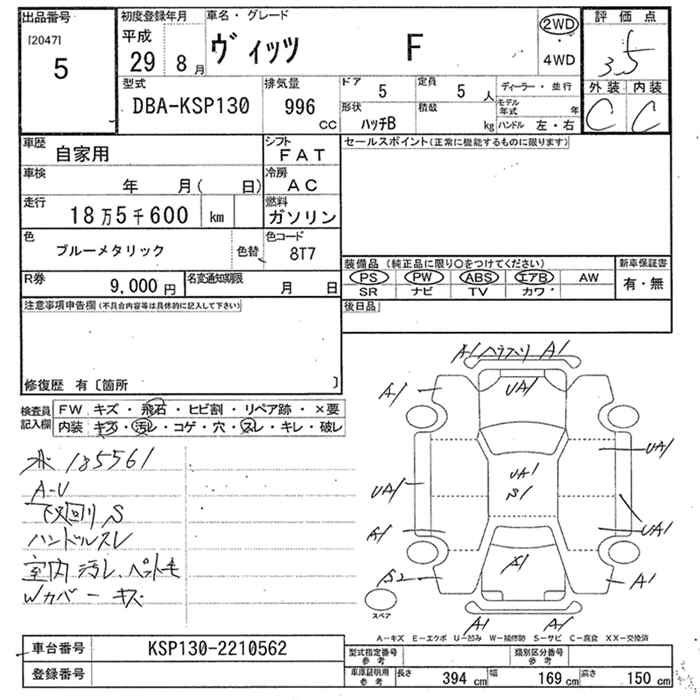 出品番号
[2047]
5
初度登録年月
平成
29 8 月
車名・グレード
ヴィッツ F
2WD
・
4WD
評価点
3.5
外装 内装
C C
型式
DBA-KSP130
排気量
996 CC
ドア 5
定員 5 人
形状 ハッチB
積載 kg
ディーラー・並行
モデル年式 年
ハンドル 左・右
車歴 自家用
シフト FAT
車検 年 月( 日)
冷房 AC
走行 18万5千600 km
燃料 ガソリン
色 ブルーメタリック 色替
色コード 8T7
R券 9,000 円
名変通知期限 月 日
セールスポイント(正常に機能するものに限ります)
装備品 (純正品に限り○をつけてください)
PS PW ABS エアB AW
SR ナビ TV カワ・
新車保証書
有・無
注意事項申告欄(不具合内容等は具体的に記入して下さい)
後日品
修復歴 有〔箇所 〕
検査員記入欄
FW キズ・飛石・ヒビ割・リペア跡・×要
内装 キズ・汚レ・コゲ・穴・スレ・キレ・破レ
水 185561
A-U
下廻り S
ハンドルスレ
室内 汚レ、ペット毛
Wカバー キズ
A1 ヘラスリ A1
A1 UA1
UA1
UA1 UA1 S1
A1 UA1
S2 S1 A1
スペア
A1 A1
A-キズ E-エクボ U-凹み W-補修跡 S-サビ C-腐食 XX-交換済
車台番号 KSP130-2210562
登録番号
型式指定番号 参考
類別区分番号 参考
車庫証明用 参考
長さ 394 cm 幅 169 cm 高さ 150 cm